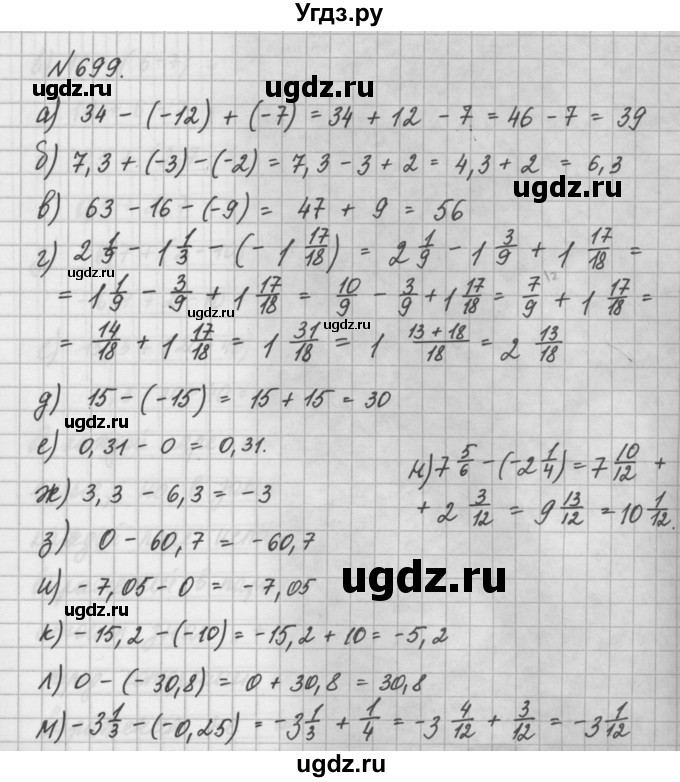 Угдз.ру
№699.
ugdz.ru ugdz.ru
а) 34 - (-12) + (-7) = 34 + 12 - 7 = 46 - 7 = 39
б) 7,3 + (-3) - (-2) = 7,3 - 3 + 2 = 4,3 + 2 = 6,3
ugdz.ru
в) 63 - 16 - (-9) = 47 + 9 = 56
г) 2 1/9 - 1 1/3 - (-1 17/18) = 2 1/9 - 1 3/9 + 1 17/18 =
ugdz.ru
= 1 1/9 - 3/9 + 1 17/18 = 10/9 - 3/9 + 1 17/18 = 7/9 + 1 17/18 =
ugdz.ru
= 14/18 + 1 17/18 = 1 31/18 = 1 13+18/18 = 2 13/18
д) 15 - (-15) = 15 + 15 = 30
ugdz.ru
е) 0,31 - 0 = 0,31.
н) 7 5/6 - (-2 1/4) = 7 10/12 +
+ 2 3/12 = 9 13/12 = 10 1/12.
ж) 3,3 - 6,3 = -3
з) 0 - 60,7 = -60,7
ugdz.ru
и) -7,05 - 0 = -7,05
ugdz.ru
к) -15,2 - (-10) = -15,2 + 10 = -5,2
л) 0 - (-30,8) = 0 + 30,8 = 30,8
м) -3 1/3 - (-0,25) = -3 1/3 + 1/4 = -3 4/12 + 3/12 = -3 1/12
ugdz.ru
ugdz.ru